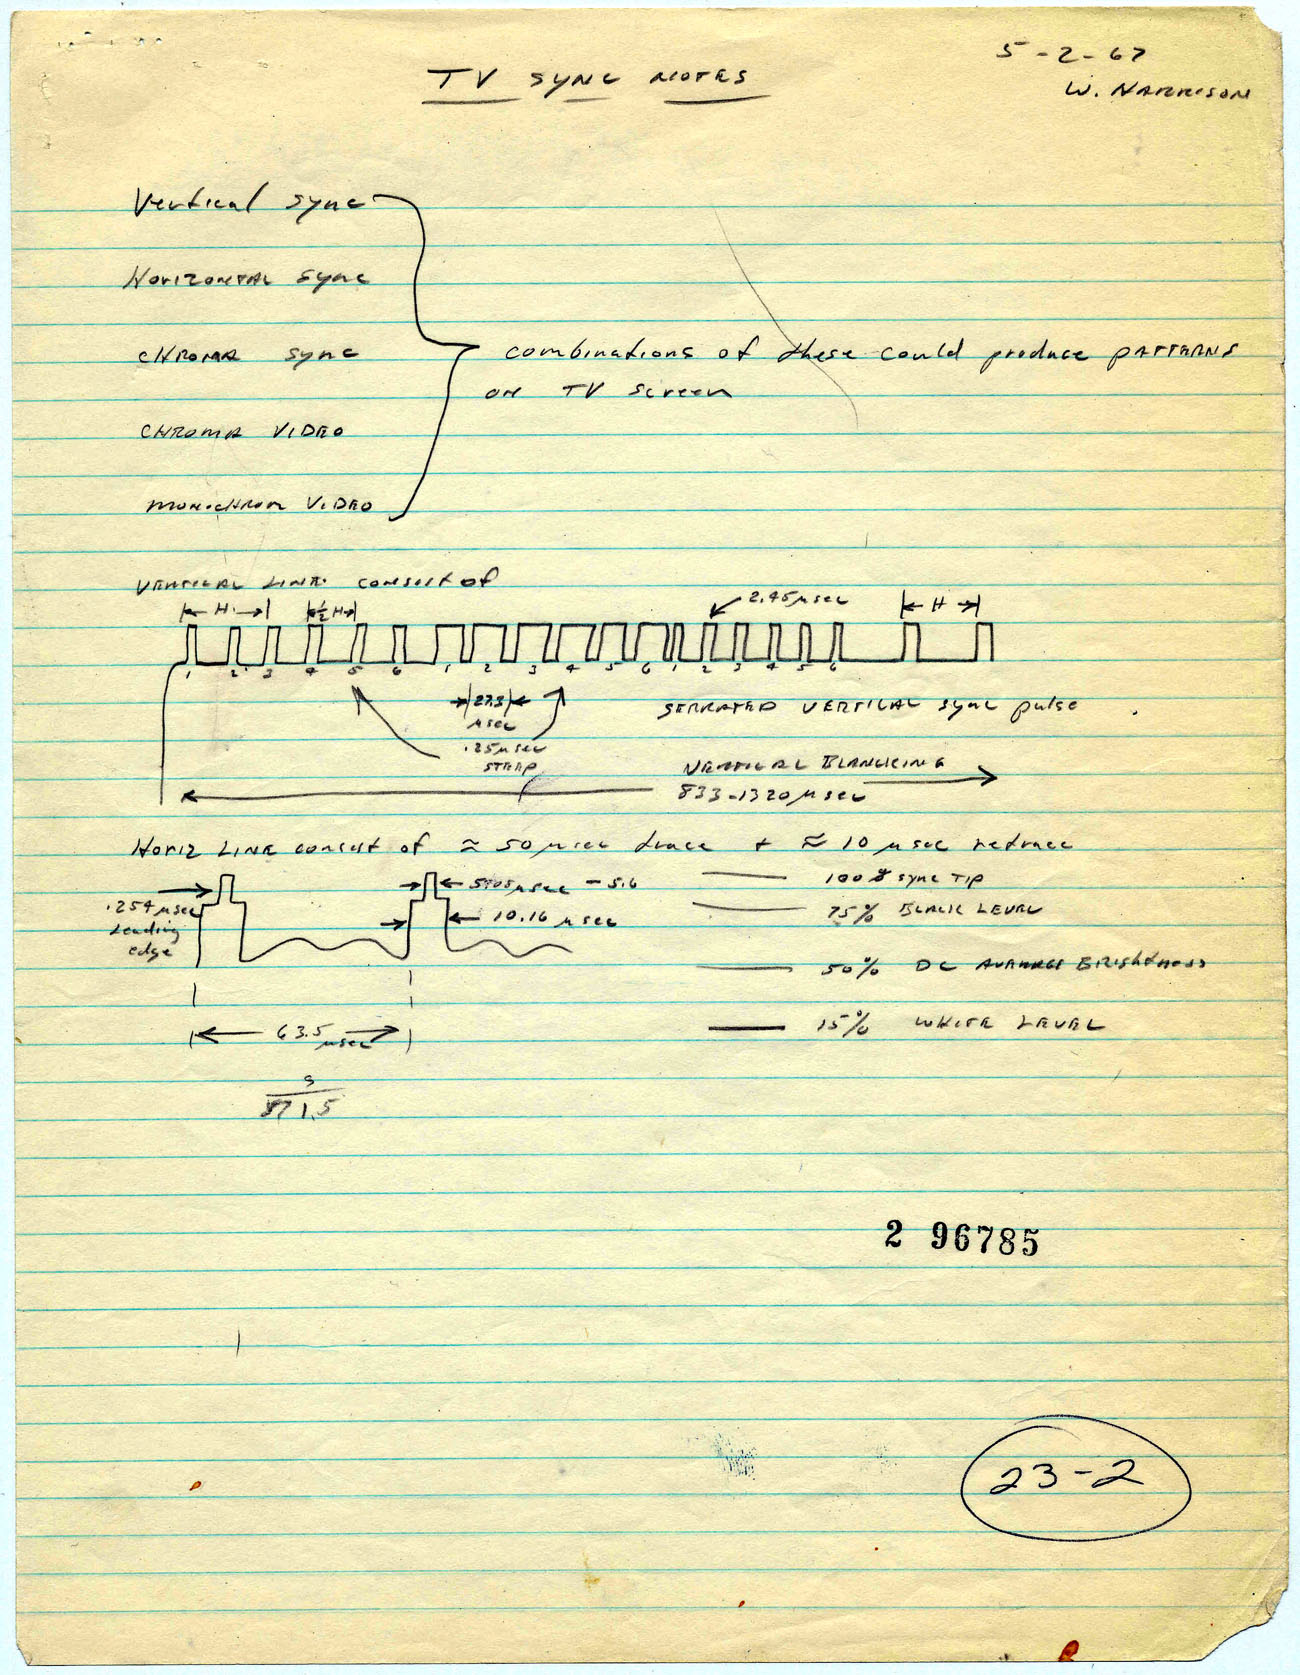 5-2-67
W. HARRISON
TV SYNC NOTES
Vertical sync
HORIZONTAL sync
CHROMA sync
combinations of these could produce PATTERNS
ON TV screen
CHROMA VIDEO
MONOCHROM VIDEO
VERTICAL LINE consist of
H ½ H 2.45 μsec H
1 2 3 4 5 6 1 2 3 4 5 6 1 2 3 4 5 6
27.3
μsec
SERRATED VERTICAL sync pulse
.25 μsec
VERTICAL BLANCKING
833-1320 μsec
Horiz LINE consist of ≈ 50 μsec trace + ≈ 10 μsec retrace
μsec - 5.6
100% sync TIP
.254 μsec
Leading
edge
10.16 μsec
75% BLACK LEVEL
50% DC AVERAGE BRIGHTNESS
63.5
μsec
15% WHITE LEVEL
2 96785
23-2